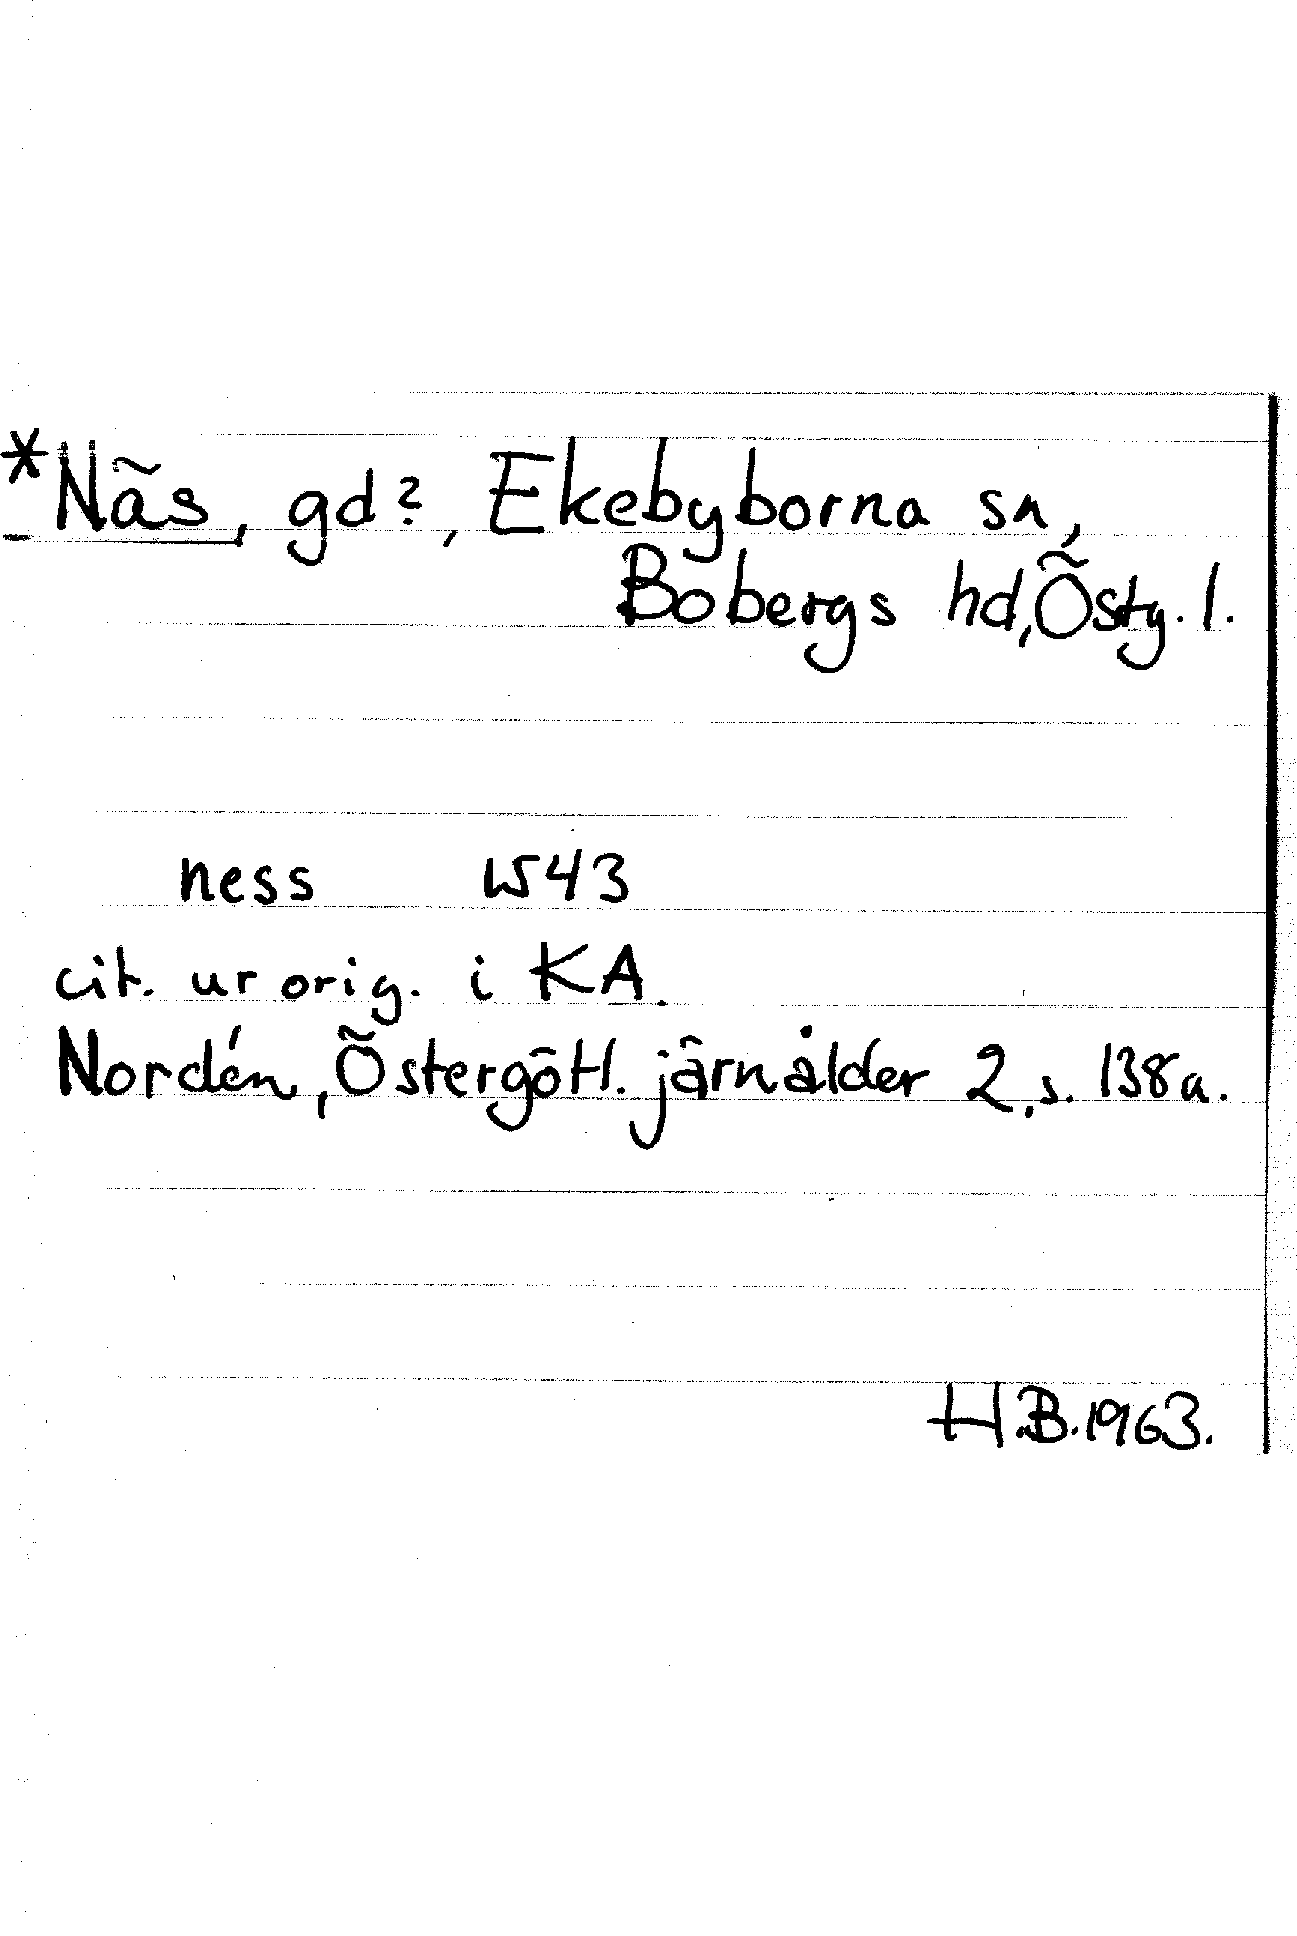 *Näs, gd?, Ekebyborna sn,
Bobergs hd, Östg. l.
ness 1543
cit. ur orig. i KA.
Nordén, Östergötl. järnålder 2, s. 138a.
H.B. 1963.